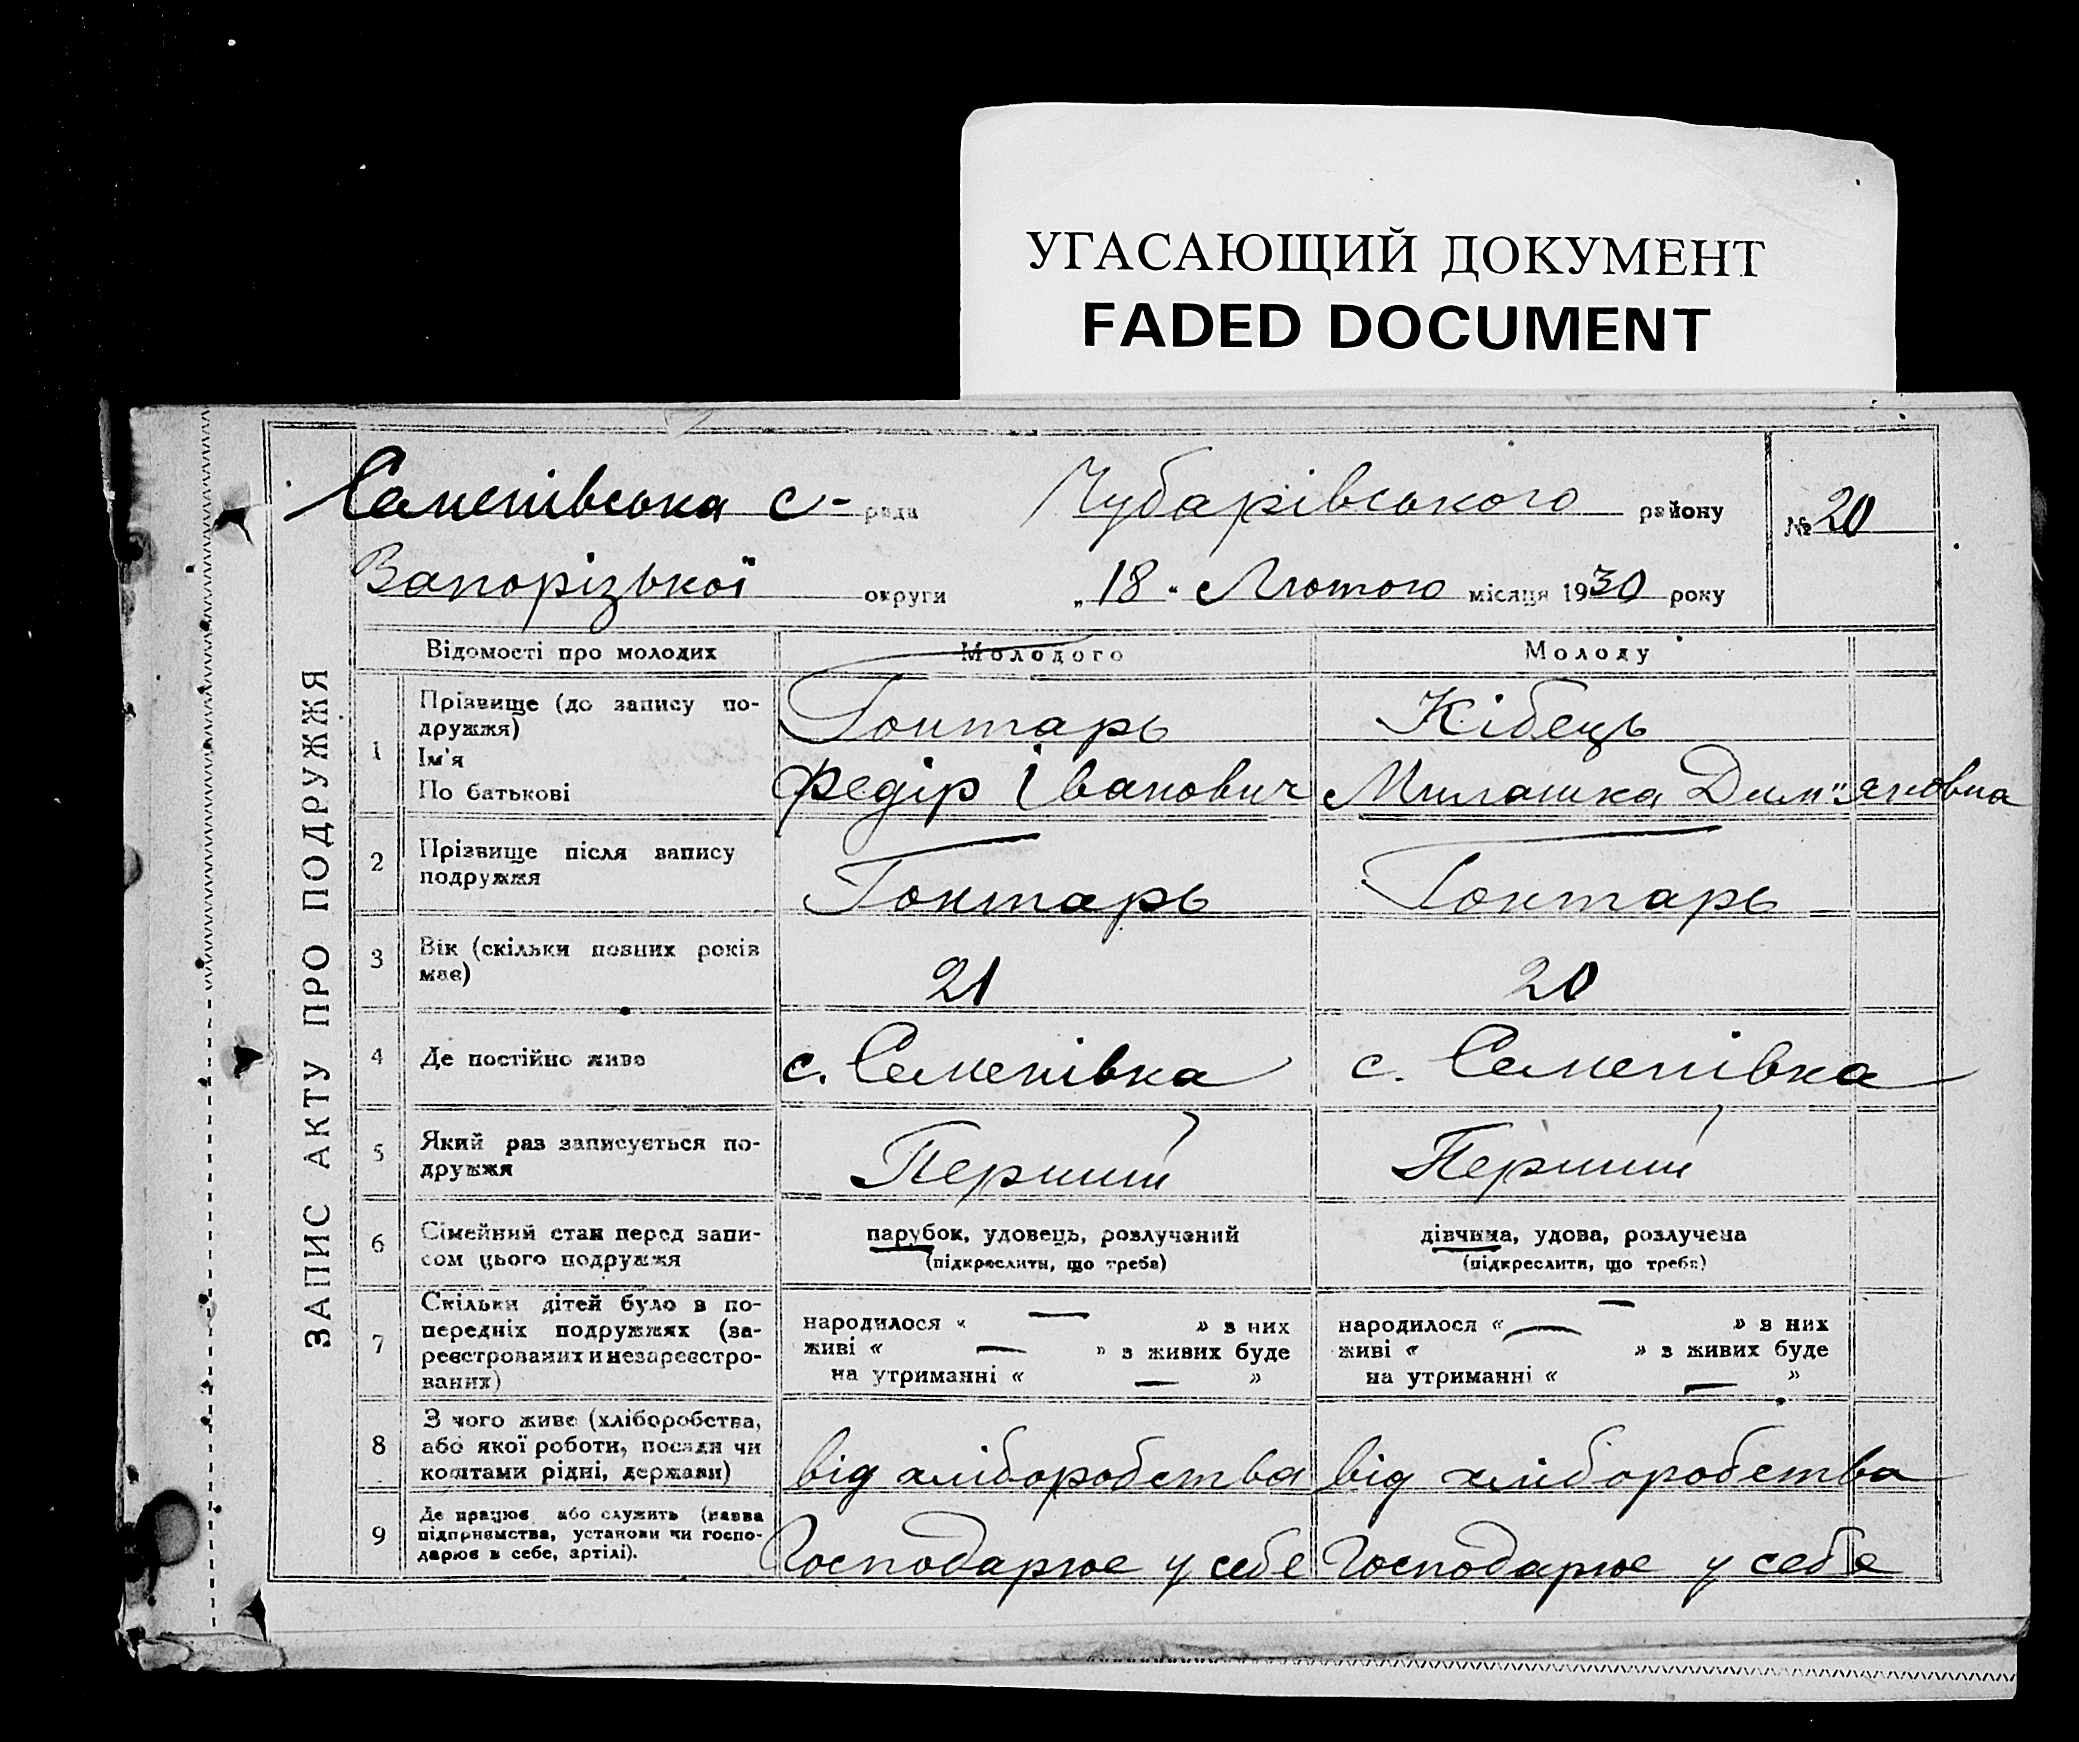 УГАСАЮЩИЙ ДОКУМЕНТ
FADED DOCUMENT
ЗАПИС АКТУ ПРО ПОДРУЖЖЯ
Семенівська с- рада Чубарівського району № 20
Запорізької округи „18" Лютого місяця 1930 року
Відомості про молодих Молодого Молоду
1 Прізвище (до запису по-
дружжя) Гонтарь Кібець
Ім'я
По батькові Федір Іванович Милашка Дим"яновна
2 Прізвище після запису
подружжя Гонтарь Гонтарь
3 Вік (скільки повних років
має) 21 20
4 Де постійно живе с. Семенівка с. Семенівка
5 Який раз записується по-
дружжя Перший Перший
6 Сімейний стан перед запи-
сом цього подружжя
парубок, удовець, розлучений
(підкреслити, що треба)
дівчина, удова, розлучена
(підкреслити, що треба)
7 Скільки дітей було в по-
передніх подружжях (за-
реєстрованих и незареєстро-
ваних)
народилося « — » з них
живі « — » з живих буде
на утриманні « — »
народилося « — » з них
живі « — » з живих буде
на утриманні « — »
8 З чого живе (хліборобства,
або якої роботи, посади чи
коштами рідні, держави) від хліборобства від хліборобства
9 Де працює або служить (назва
підприємства, установи чи госпо-
дарює в себе, артілі). Господарює у себе Господарює у себе